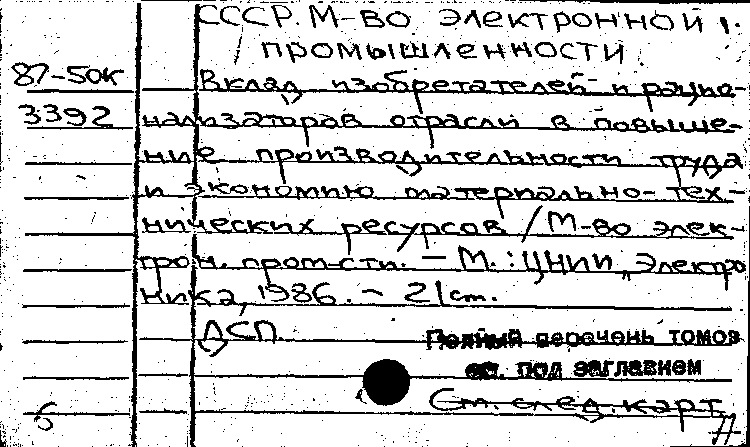 СССР. М-во электронной
промышленности.
87-50к Вклад изобретателей и рацио-
3392 нализаторов отрасли в повыше-
ние производительности труда
и экономию материально-тех-
нических ресурсов / М-во элек-
трон. пром-сти. – М. : ЦНИИ „Электро
ника, 1986. – 21 см.
ДСП
Полный перечень томов
см. под заглавием
См. след. карт.
б